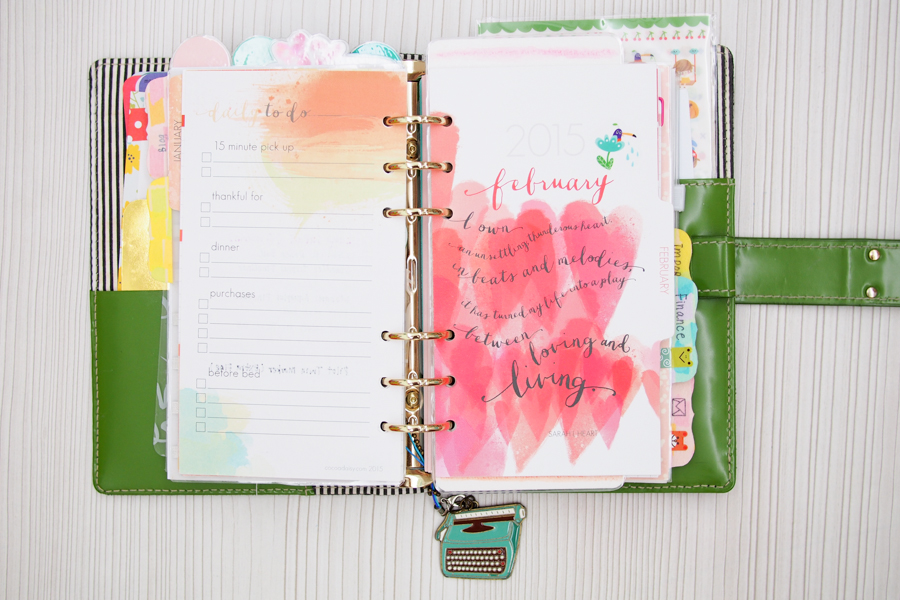 daily to do
15 minute pick up
thankful for
dinner
purchases
before bed
JANUARY
BLOG
2015
february
I own
an unsettling thunderous heart
in beats and melodies,
it has turned my life into a play
between
loving and
living.
FEBRUARY
Finance